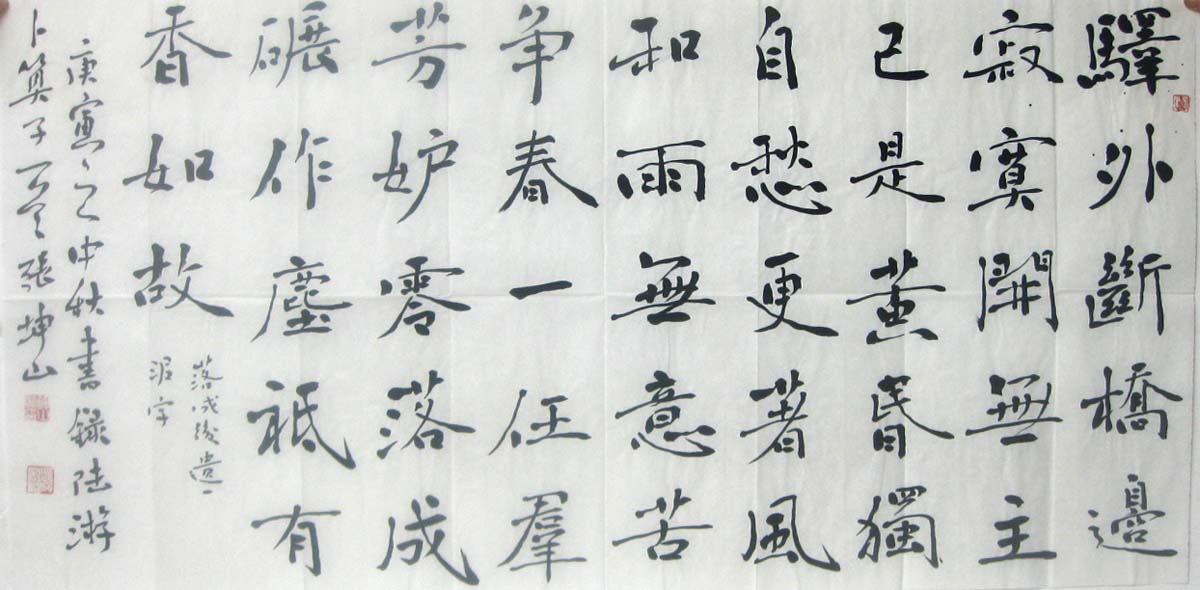 驛外斷橋邊
寂寞開無主
已是黃昏獨
自愁更著風
和雨無意苦
争春一任羣
芳妒零落成
碾作塵祗有
香如故
落成後遺一
泥字
庚寅之中秋書錄陸游
卜算子 張坤山